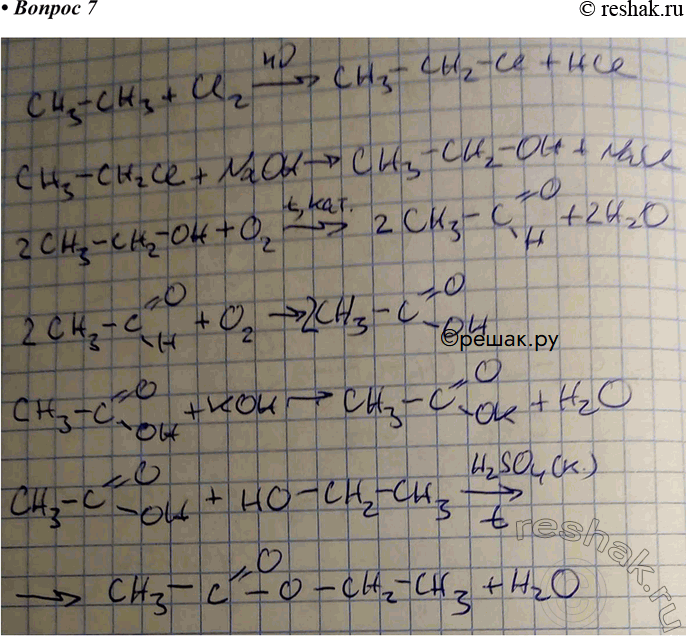 • Вопрос 7
© reshak.ru
CH₃-CH₃ + Cl₂ —hν→ CH₃-CH₂-Cl + HCl
CH₃-CH₂Cl + NaOH → CH₃-CH₂-OH + NaCl
2CH₃-CH₂-OH + O₂ —t, кат.→ 2CH₃-C(=O)-H + 2H₂O
2CH₃-C(=O)-H + O₂ → 2CH₃-C(=O)-OH
©решак.ру
CH₃-C(=O)-OH + KOH → CH₃-C(=O)-OK + H₂O
CH₃-C(=O)-OH + HO-CH₂-CH₃ —H₂SO₄(к.), t→
→ CH₃-C(=O)-O-CH₂-CH₃ + H₂O
reshak.ru